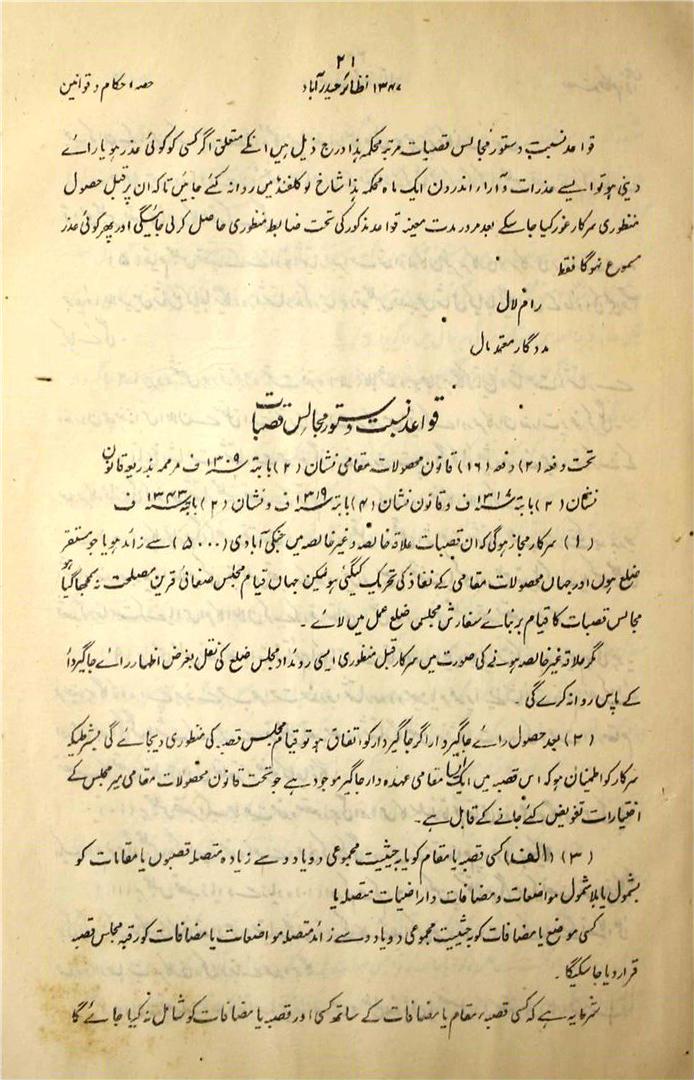 ۲۱
حصہ احکام و قوانین
نظائر حیدرآباد ۱۳۴۷
قواعد نسبت دستور مجالس قصبات مرتبہ محکمہ ہذا درج ذیل ہیں انکے متعلق اگر کسی کو کوئی عذر ہو یا رائے
دینی ہو تو ایسے عذرات و آراء اندرون ایک ماہ محکمہ ہذا شاخ لوکلفنڈ میں روانہ کئے جائیں تاکہ ان پر قبل حصول
منظوری سرکار غور کیا جاسکے بعد مرور مدت معینہ قواعد مذکور کی تحت ضابطہ منظوری حاصل کرلی جائیگی اور پھر کوئی عذر
مسموع نہوگا فقط
رام لال
مددگار معتمد مال
قواعد نسبت دستور مجالس قصبات
تحت دفعہ (۲) دفعہ (۱۶) قانون محصولات مقامی نشان (۲) بابتہ ۱۳۰۹ ف مرممہ بذریعہ قانون
نشان (۲) بابتہ ۱۳۱۷ ف و قانون نشان (۴) بابتہ ۱۳۱۹ ف و نشان (۲) بابتہ ۱۳۴۳ ف
(۱) سرکار مجاز ہوگی کہ ان قصبات علاقہ خالصہ و غیر خالصہ میں جنکی آبادی (۵۰۰۰) سے زائد ہو یا جو مستقر
ضلع ہوں اور جہاں محصولات مقامی کے نفاذ کی تحریک کیگئی ہو لیکن جہاں قیام مجلس صفائی قرین مصلحت نہ سمجھا گیا ہو
مجالس قصبات کا قیام بربنائے سفارش مجلس ضلع عمل میں لائے ۔
مگر علاقہ غیر خالصہ ہونے کی صورت میں سرکار قبل منظوری ایسی روئداد مجلس ضلع کی نقل بغرض اظہار رائے جاگیردار
کے پاس روانہ کرے گی ۔
(۲) بعد حصول رائے جاگیردار اگر جاگیردار کو اتفاق ہو تو قیام مجلس قصبہ کی منظوری دیجائے گی بشرطیکہ
سرکار کو اطمنان ہو کہ اس قصبہ میں ایک ایسا مقامی عہدہ دار جاگیر موجود ہے جو تحت قانون محصولات مقامی میر مجلس کے
اختیارات تفویض کئے جانے کے قابل ہے ۔
(۳) (الف) کسی قصبہ یا مقام کو یا بہ حیثیت مجموعی دو یا دو سے زیادہ متصلہ قصبوں یا مقامات کو
بشمول یا بلا شمول مواضعات و مضافات و اراضیات متصلہ یا
کسی موضع یا مضافات کو بہ حیثیت مجموعی دو یا دو سے زائد متصلہ مواضعات یا مضافات کو رقبہ مجلس قصبہ
قرار دیا جاسکیگا ۔
شرط یہ ہے کہ کسی قصبہ، مقام یا مضافات کے ساتھ کسی اور قصبہ یا مضافات کو شامل نہ کیا جائے گا